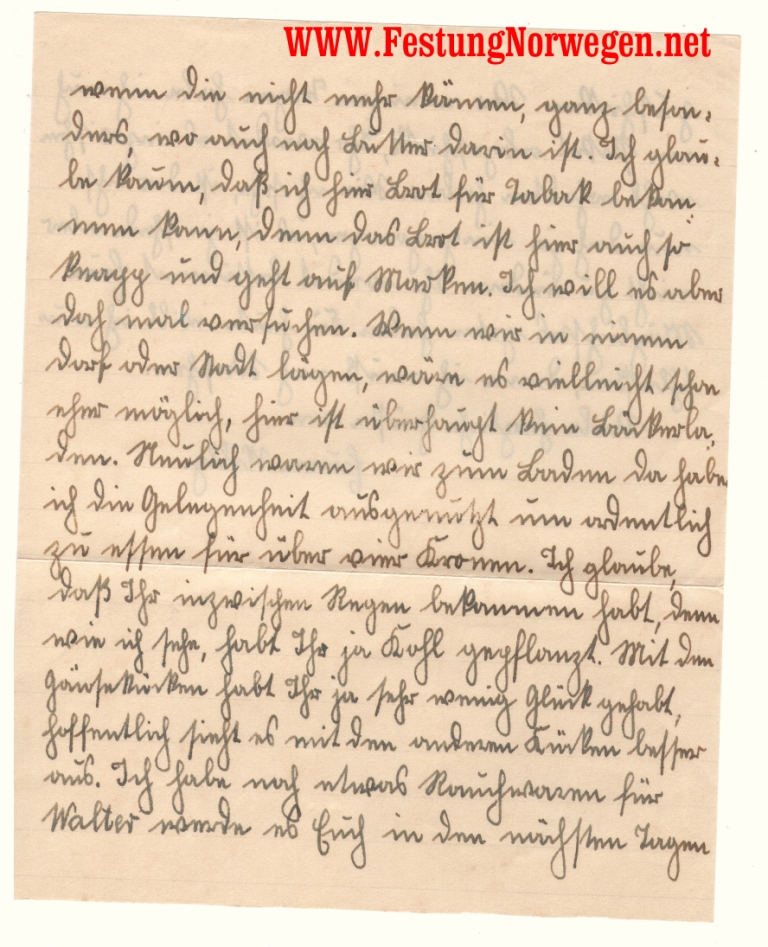 WWW.FestungNorwegen.net
wenn die nicht mehr kämen, ganz beson-
ders, wo auch noch Butter darin ist. Ich glau-
be kaum, daß ich hier Brot für Tabak bekom
men kann, denn das Brot ist hier auch so
knapp und geht auf Marken. Ich will es aber
doch mal versuchen. Wenn wir in einem
Dorf oder Stadt lägen, wäre es vielleicht schon
eher möglich, hier ist überhaupt kein Bäckerla-
den. Neulich waren wir zum Baden da habe
ich die Gelegenheit ausgenutzt um ordentlich
zu essen für über vier Kronen. Ich glaube,
daß Ihr inzwischen Regen bekommen habt, denn
wie ich sehe, habt Ihr ja Kohl gepflanzt. Mit den
Gänseküken habt Ihr ja sehr wenig Glück gehabt,
hoffentlich sieht es mit den anderen Kücken besser
aus. Ich habe noch etwas Rauchwaren für
Walter werde es Euch in den nächsten Tagen